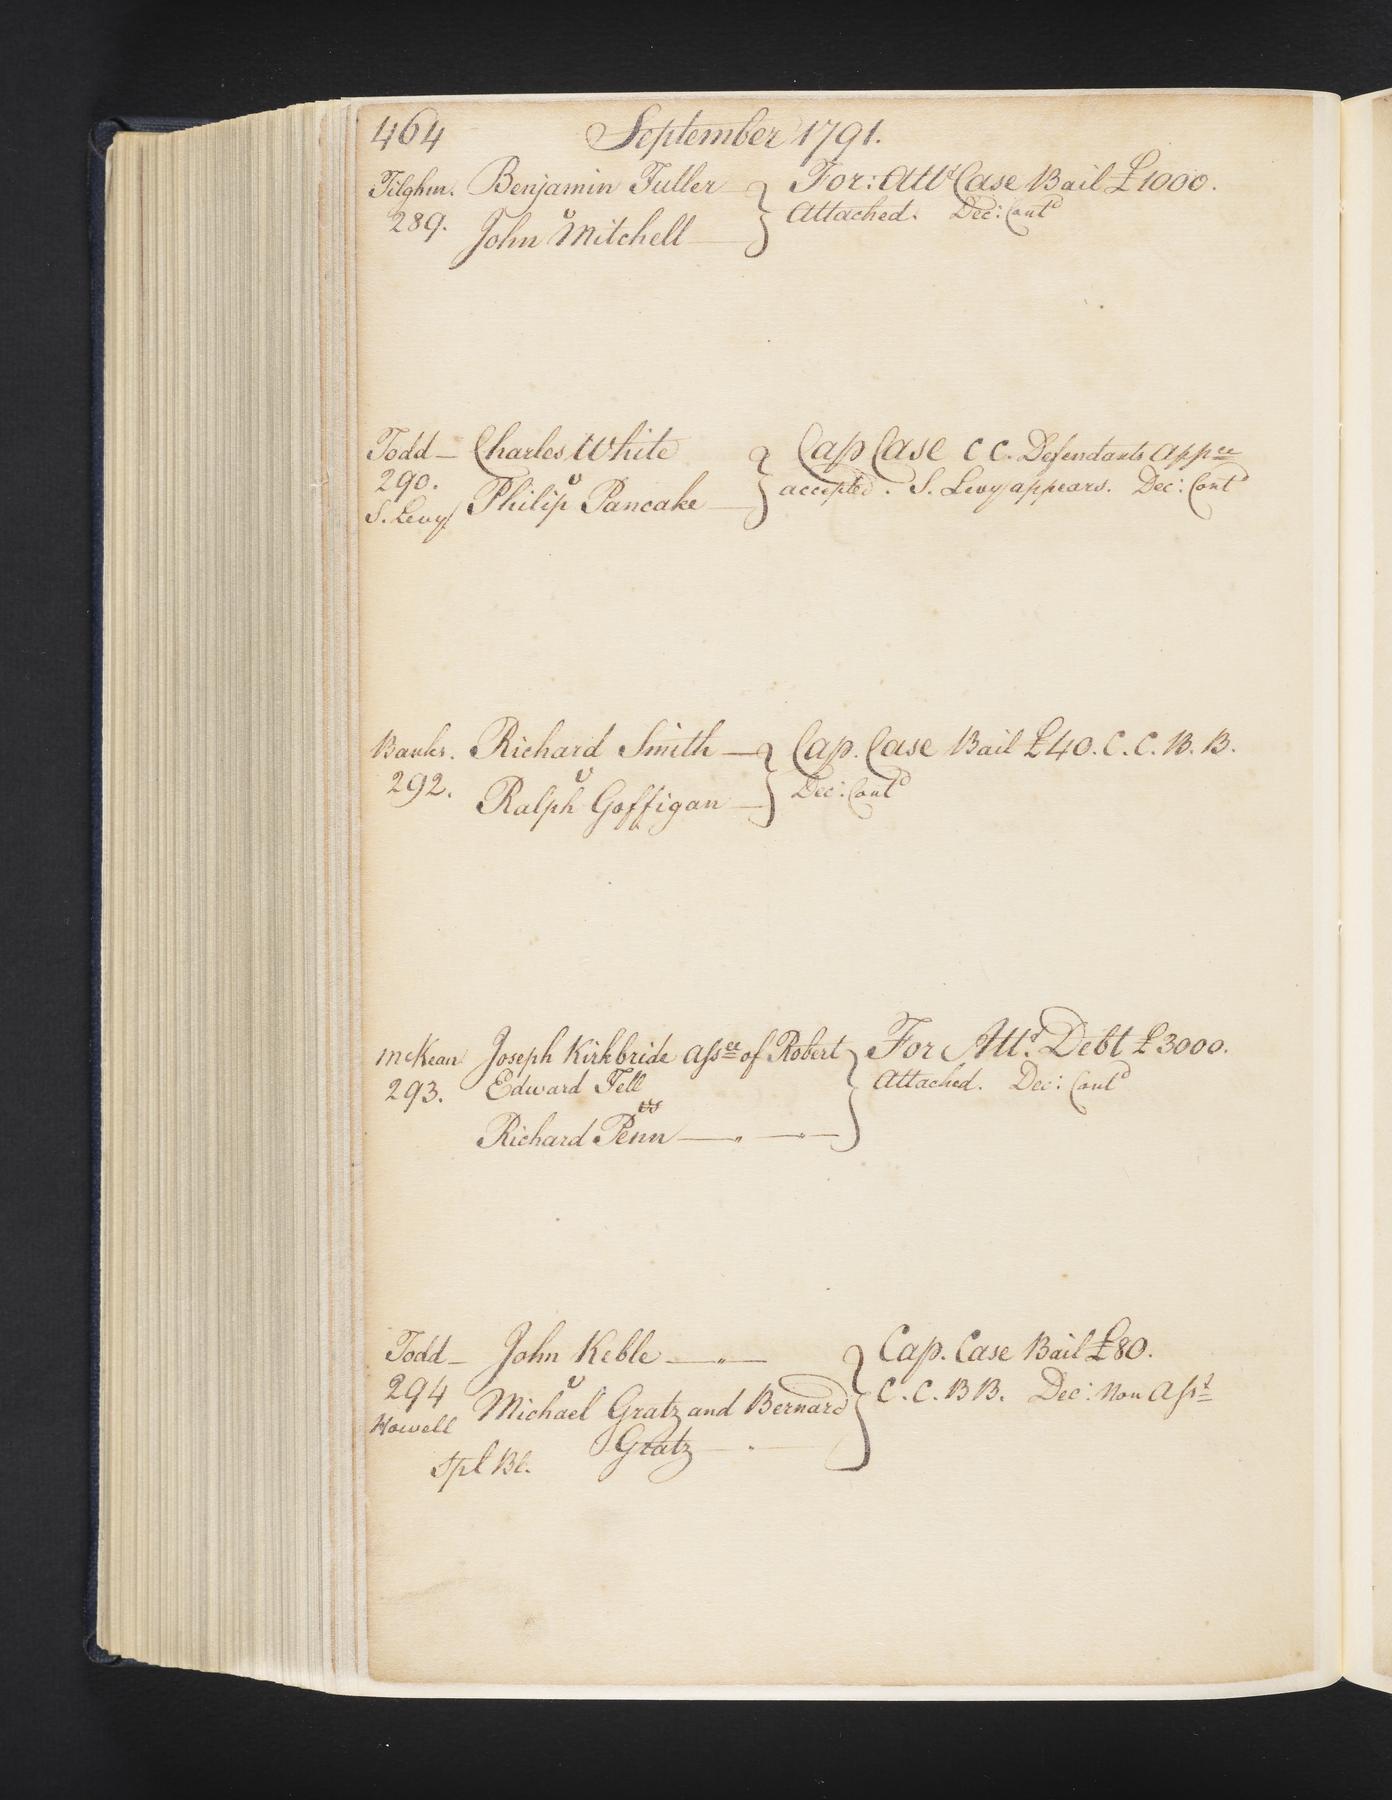 464 September 1791.
Tilghm. Benjamin Fuller For: Attt Case Bail £1000.
289. v Attached. Dec: Contd
John Mitchell
Todd Charles White Cap Case C C. Defendants Appce
290. v accepted. S. Levy appears. Dec: Contd
S. Levy Philip Pancake
Banks. Richard Smith Cap. Case Bail £40. C. C. B. B.
292. v Dec: Contd
Ralph Goffigan
McKean Joseph Kirkbride Assee of Robert For Attt. Debt £3000.
293. Edward Fell Attached. Dec: Contd
vs
Richard Penn
Todd John Keble Cap. Case Bail £80.
294 v C. C. B B. Dec: Non Asst
Howell Michael Gratz and Bernard
Gratz
Spl Bl.